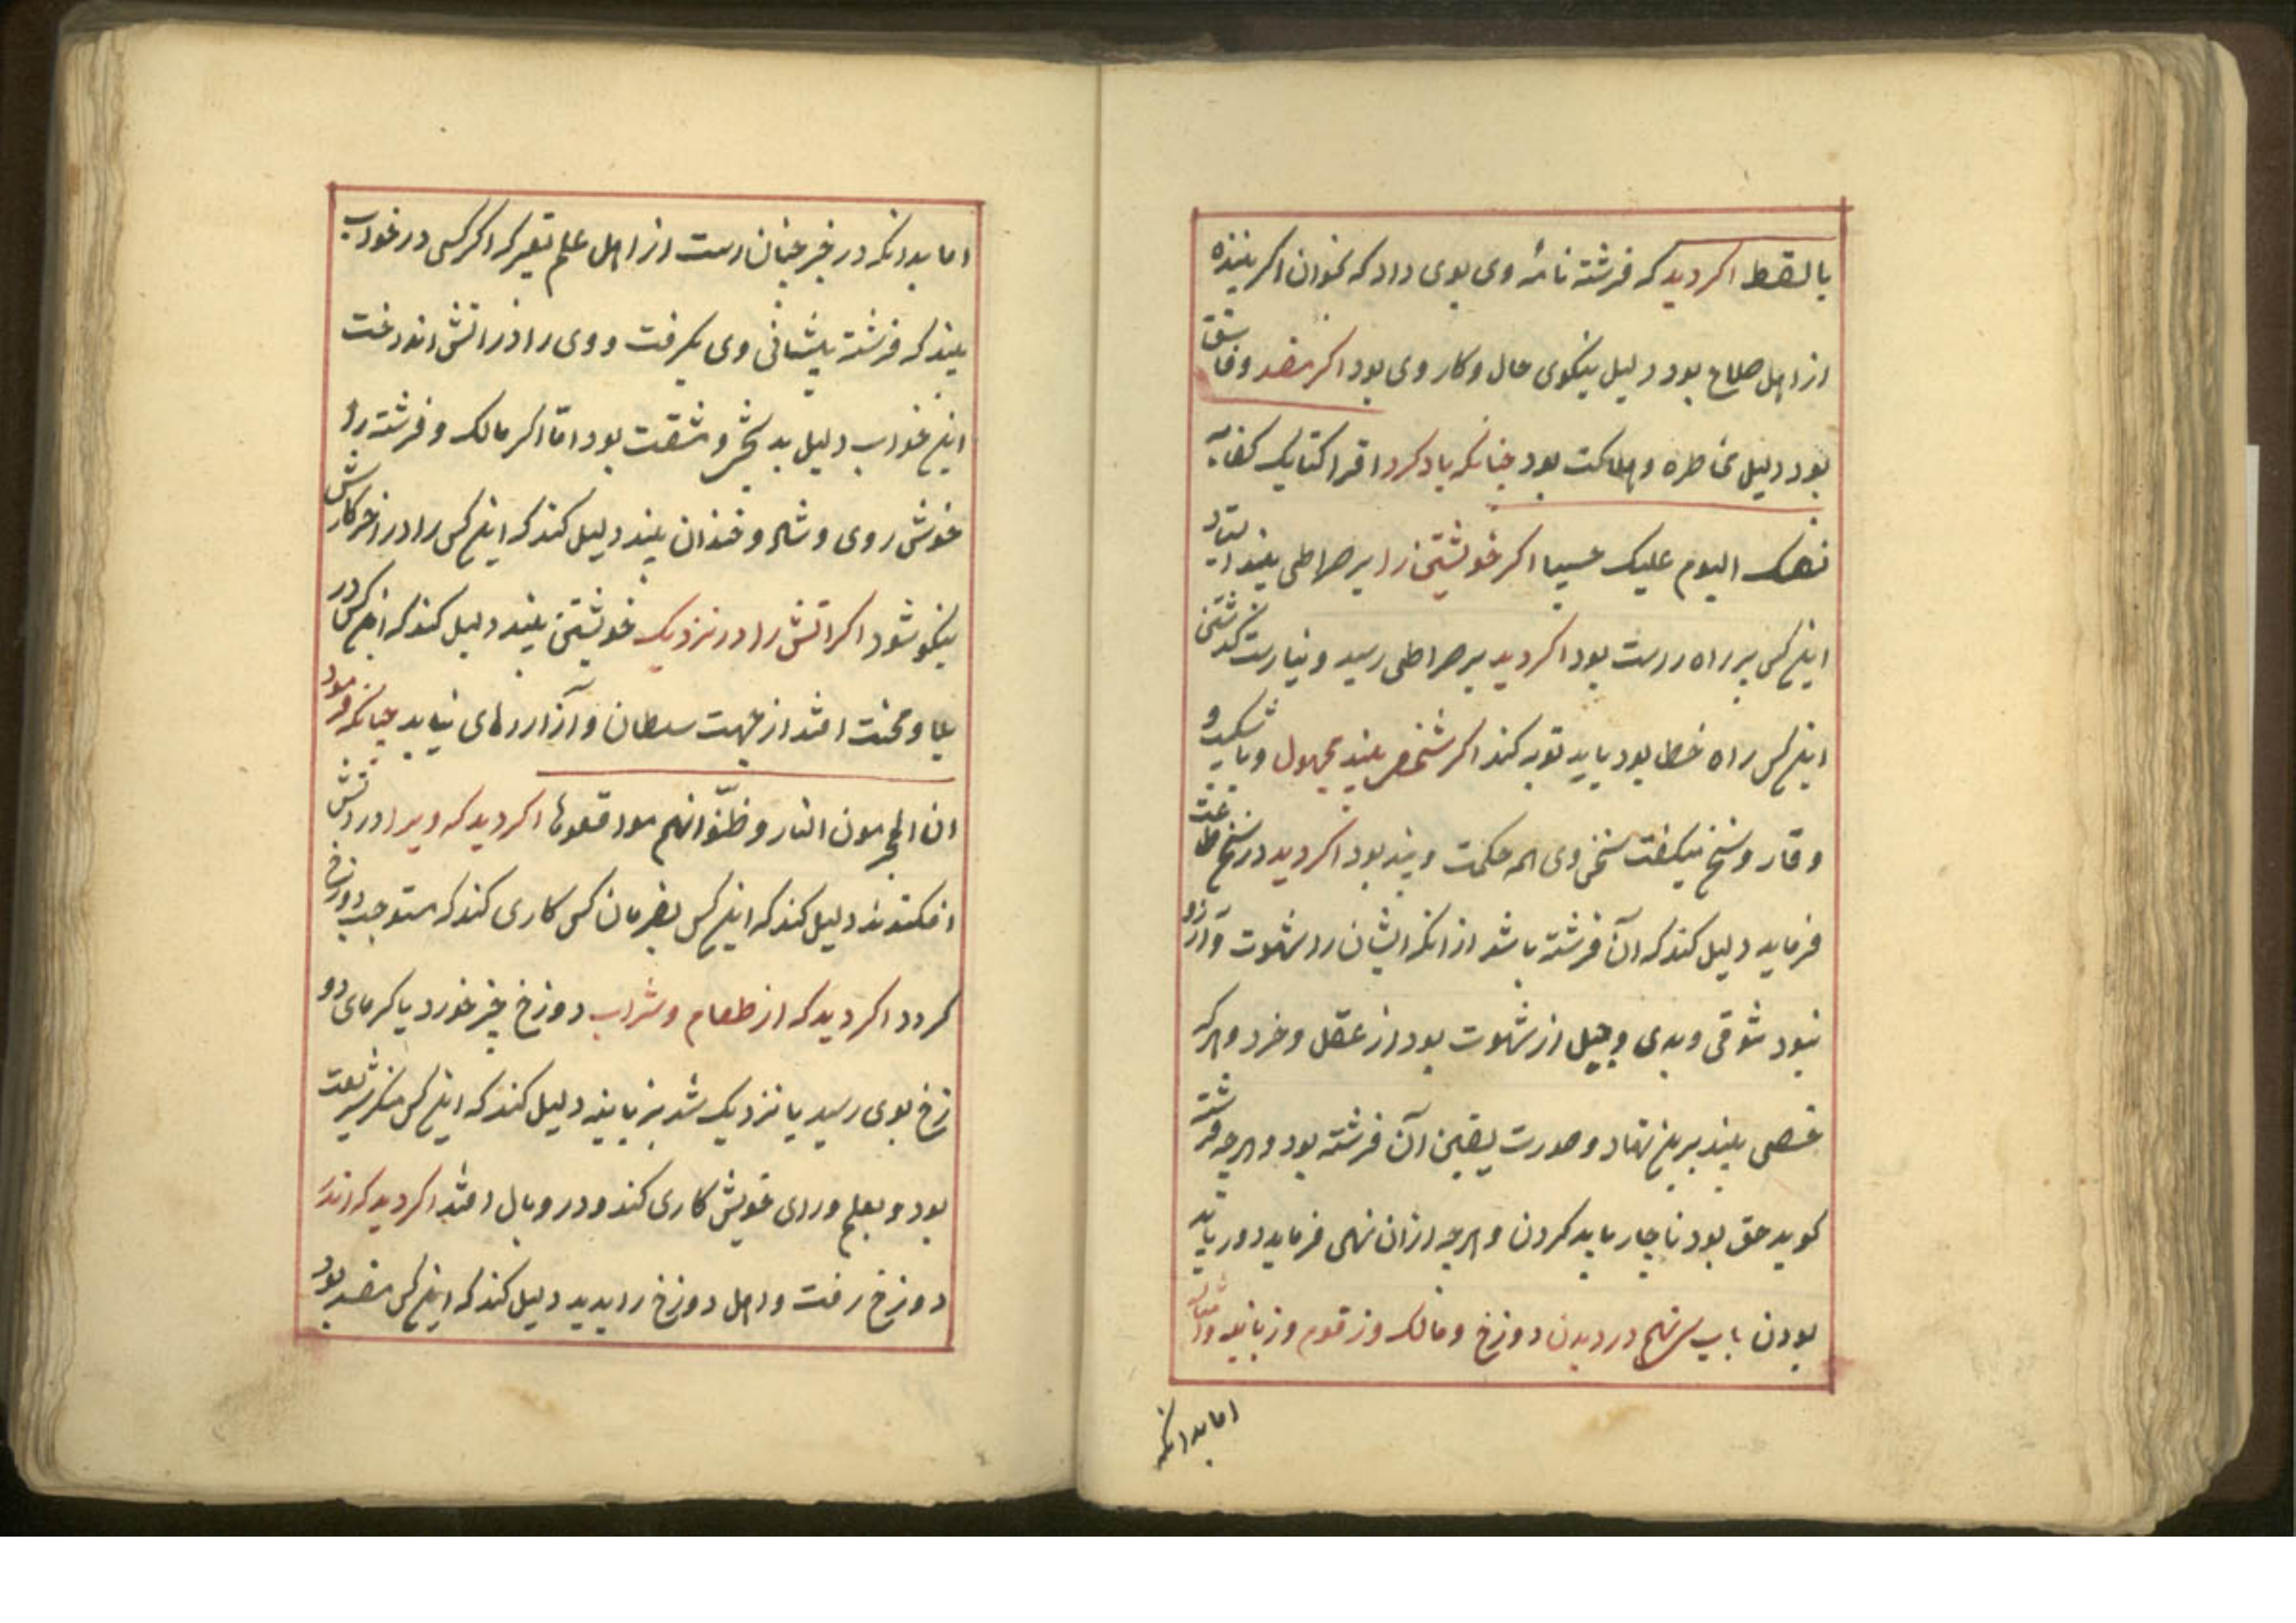 بالقط اکر دید که فرشته نامهٔ وی بوی داد که بخوان اکر بیننده
از اهل صلاح بود دلیل نیکوی حال و کار وی بود اکر مفسد و فاسق
بود دلیل مخاطره و هلاکت بود جنانکه یاد کرد اقرا کتابک کفی
بنفسک الیوم علیک حسیبا اکر خویشتن را بر صراطی بیند
اینکس بر راه راست بود اکر دید بر صراطی رسید و نیارست کذشتن
اینکس راه خطا بود باید توبه کند اکر شخصی بیند مجهول و با شکیب و
وقار و سخن میکفت سخن وی همه حکمت و پند بود اکر دید در سخن طاعت
فرماید دلیل کند که آن فرشته باشد از انکه ایشان را شهوت و آرزو
نبود شوقی و بدی از شهوت بود از عقل و خرد و هرکه
شخصی بیند برین نهاد و صورت یقین آن فرشته بود و هرجه فرشته
کوید حق بود ناجار باید کردن و هرجه از آن نهی فرماید دور باید
بودن باب در دیدن دوزخ و مالک و زقوم و زبانیه و امثال
اما بدانکه
اما بدانکه در خبر جنان است از اهل علم تعبیر که اکر کسی در خواب
بیند که فرشته پیشانی وی بکرفت و وی را در اتش انداخت
این خواب دلیل بد بختی و شقت بود امّا اکر مالک و فرشته را
خوش روی و شاد و خندان بیند دلیل کند که اینکس را در اخر کارش
نیکو شود اکر اتش را در نزدیک خویشتن بیند دلیل کند که انکس در
بلا و محنت افتد از جهت سلطان و آزار رهای نیابد جنانکه فرمود
ان المجرمون النار و ظنّوا انهم مواقعوها اکر دید که ویرا در اتش
افکندند دلیل کند که اینکس بفرمان کس کاری کند که مستوجب دوزخ
کردد اکر دید که از طعام و شراب دوزخ جیز خورد یا کرمای دو
زخ بوی رسید یا نزدیک شد بزبانیه دلیل کند که اینکس منکر شریعت
بود و بعلم و رای خویش کاری کند و در وبال افتد اکر دید که اندر
دوزخ رفت و اهل دوزخ را بدید دلیل کند که اینکس مفسد بود